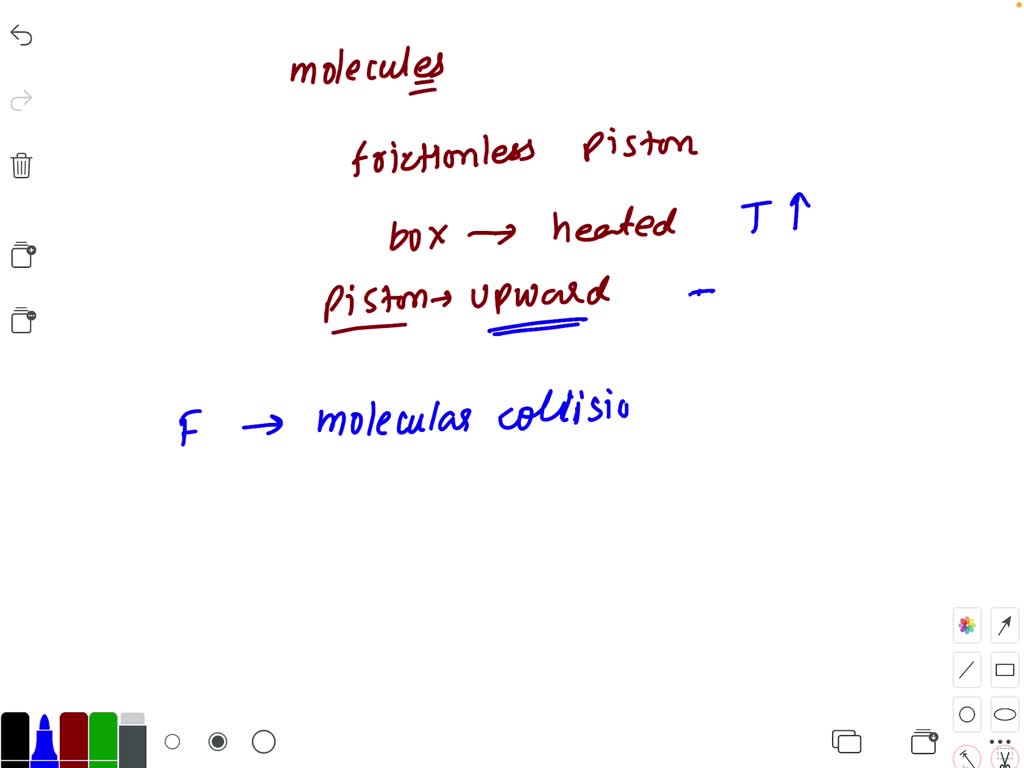 molecules
frictionless piston
box → heated T ↑
piston → upward -
F → molecular collisio